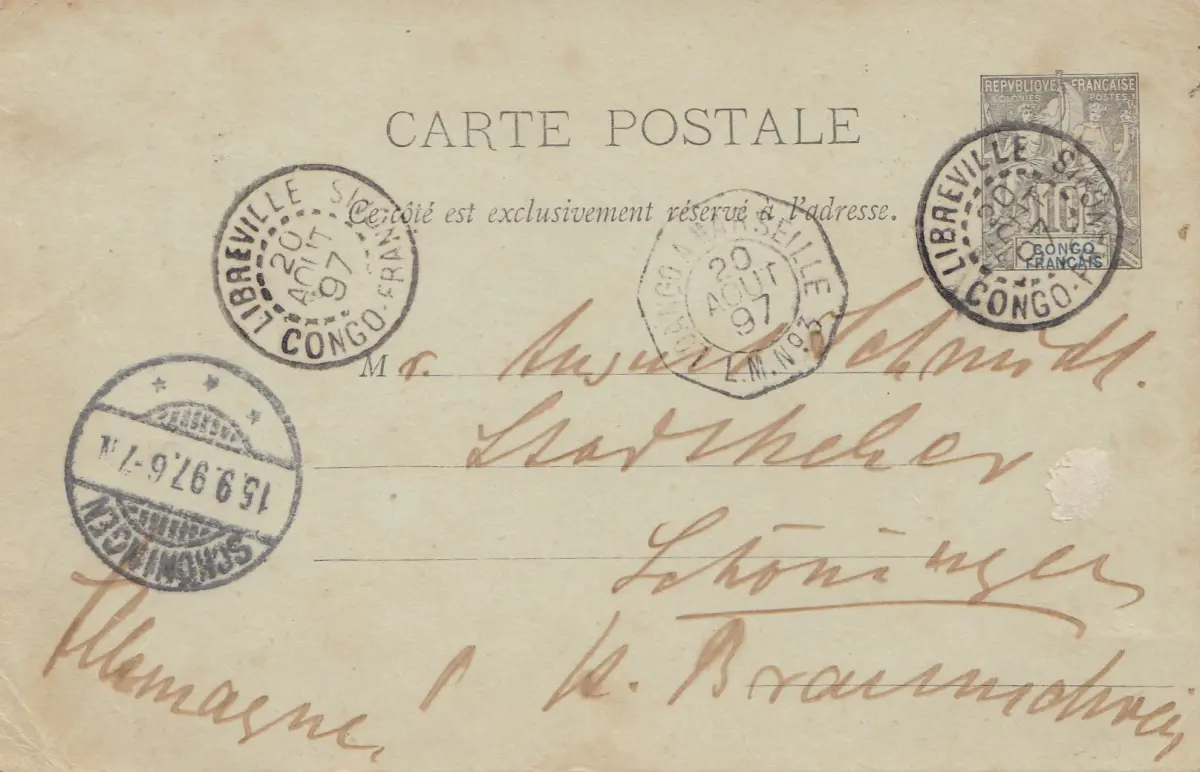 REPVBLIQVE FRANÇAISE
COLONIES POSTES
CARTE POSTALE
Ce côté est exclusivement réservé à l'adresse.
10
CONGO
FRANÇAIS
LIBREVILLE
20
AOUT
97
CONGO-FRANÇAIS
LOANGO A MARSEILLE
20
AOUT
97
L.M.No.3
LIBREVILLE
20
AOUT
97
CONGO-F
Mr. August Schmidt.
Stadtkeller
Schöningen
Braunschweig
Allemagne.
15.9.97.6-7N.
SCHÖNINGEN